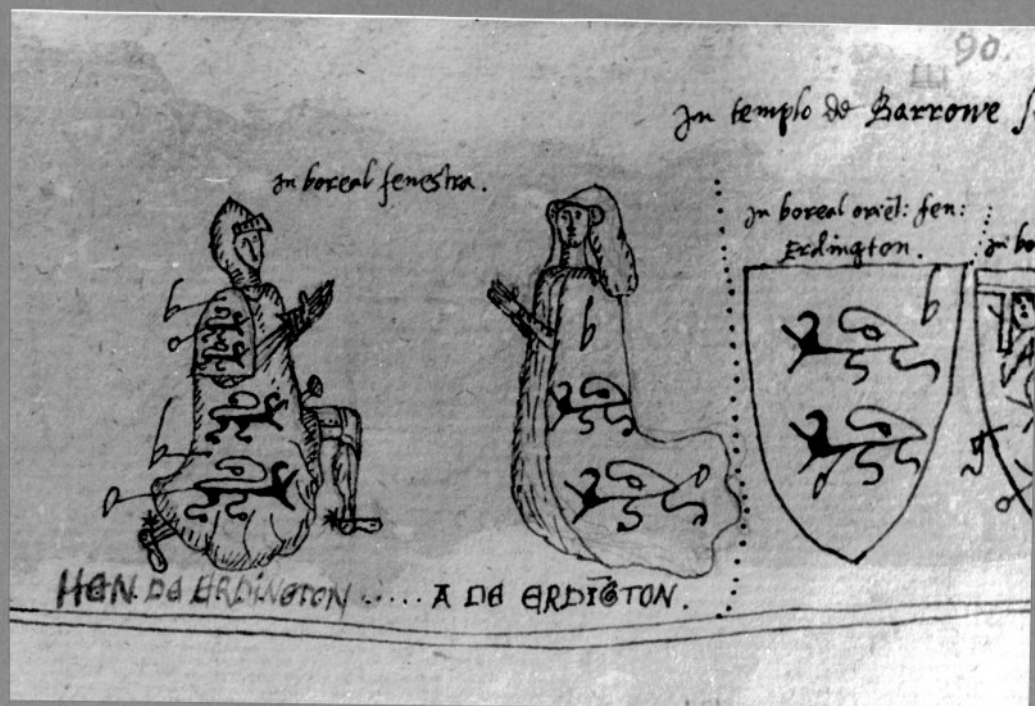 90.
In templo de Barrowe
In boreal fenestra.
In boreal oriēt: fen:
Erdington.
b
b
b
b
HEN. DE ERDINGTON ..... A DE ERDIGTON.